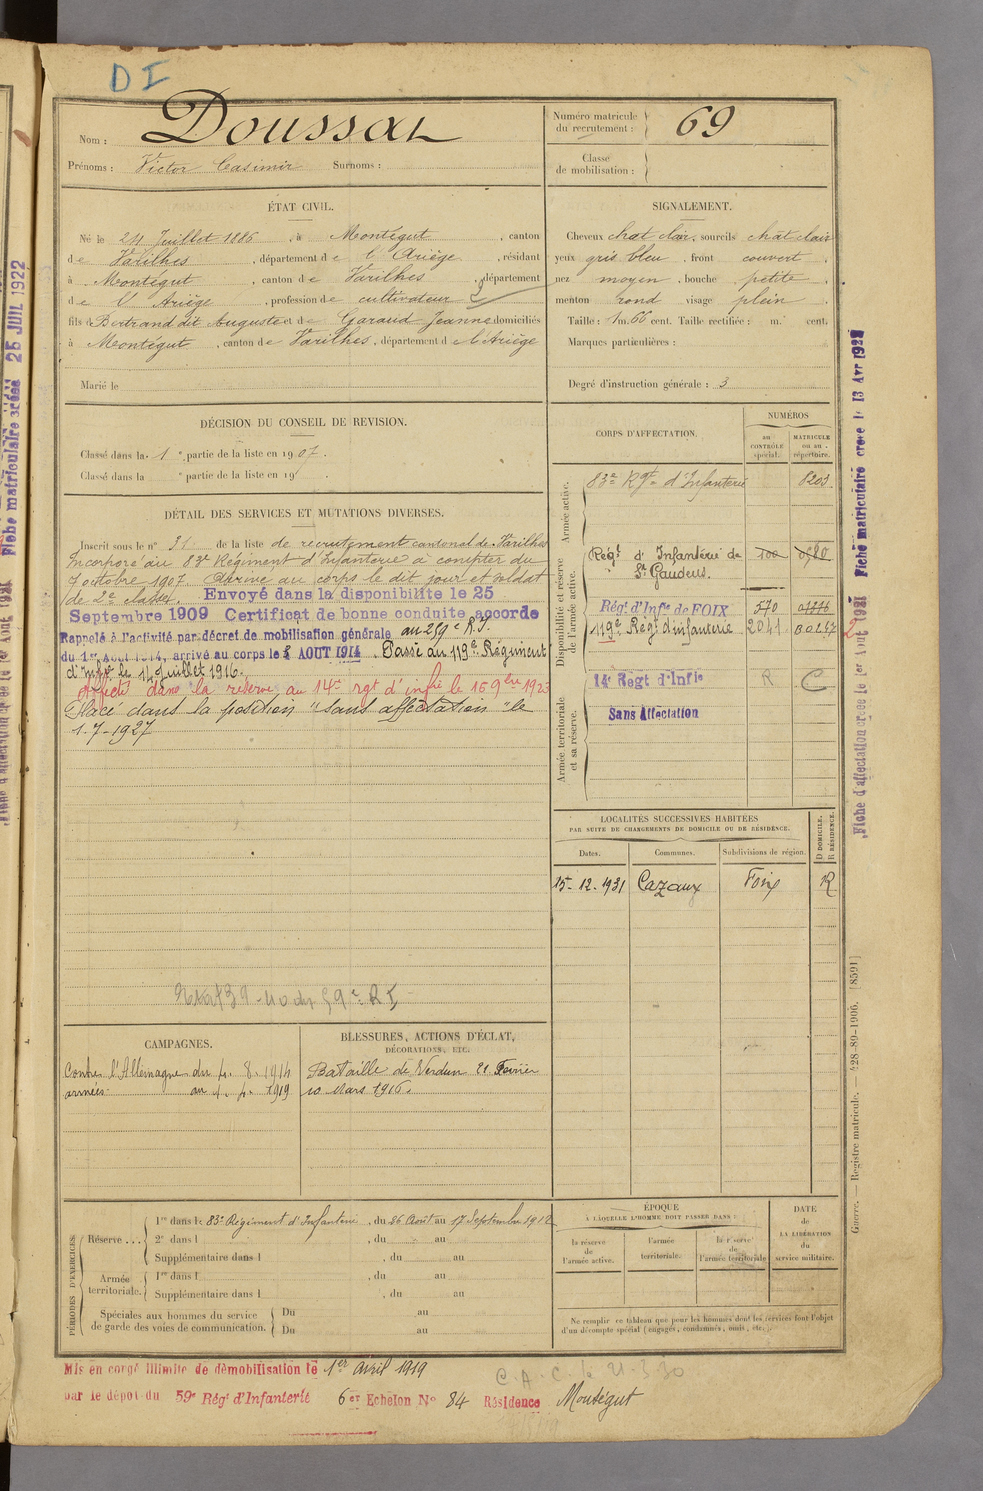 DI
Nom : Doussat
Prénoms : Victor Casimir Surnoms :
Numéro matricule du recrutement : 69
Classe de mobilisation :
ÉTAT CIVIL.
Né le 24 Juillet 1886, à Montégut, canton
de Varilhes, département de l'Ariège, résidant
à Montégut, canton de Varilhes, département
de l'Ariège, profession de cultivateur
fils de Bertrand dit Auguste et de Garaud Jeanne domiciliés
à Montégut, canton de Varilhes, département de l'Ariège
Marié le
SIGNALEMENT.
Cheveux chat clair, sourcils chat clair
yeux gris bleu, front couvert,
nez moyen, bouche petite,
menton rond visage plein,
Taille : 1 m. 66 cent. Taille rectifiée : m. cent.
Marques particulières :
Degré d'instruction générale : 3
DÉCISION DU CONSEIL DE REVISION.
Classé dans la 1e partie de la liste en 1907.
Classé dans la e partie de la liste en 19 .
DÉTAIL DES SERVICES ET MUTATIONS DIVERSES.
Inscrit sous le n° 31 de la liste de recrutement cantonal de Varilhes
Incorporé au 83e Régiment d'Infanterie à compter du
7 octobre 1907 Arrivé au corps le dit jour et soldat
de 2e classe. Envoyé dans la disponibilité le 25
Septembre 1909 Certificat de bonne conduite accordé
Rappelé à l'activité par décret de mobilisation générale au 259e R.I.
du 1er Août 1914, arrivé au corps le AOUT 1914. Passé au 119e Régiment
d'Infie le 14 Juillet 1916.
Affecté dans la réserve au 14e rgt d'infie le 16 9bre 1923
Placé dans la position "sans affectation" le
1-7-1927
CORPS D'AFFECTATION.
NUMÉROS
au CONTRÔLE spécial.
MATRICULE ou au répertoire.
Armée active.
83e Rgt d'Infanterie 8203
Disponibilité et réserve de l'armée active.
Régt d'Infanterie de St Gaudens. 100
Régt d'Infie de FOIX 570
119e Régt d'infanterie 2041
2
14e Régt d'Infie R C
Armée territoriale et sa réserve.
Sans Affectation
LOCALITÉS SUCCESSIVES HABITÉES
PAR SUITE DE CHANGEMENTS DE DOMICILE OU DE RÉSIDENCE.
Dates. Communes. Subdivisions de région. D DOMICILE. R RÉSIDENCE.
15-12-1931 Cazaux Foix R
CAMPAGNES.
Contre l'Allemagne du 4. 8. 1914
armées au 1. 4. 1919
BLESSURES, ACTIONS D'ÉCLAT,
DÉCORATIONS, ETC.
Bataille de Verdun 21 Février
10 Mars 1916.
PÉRIODES D'EXERCICES.
Réserve ...
1re dans le 83e Régiment d'Infanterie, du 26 Août au 17 Septembre 1912
2e dans l , du au
Supplémentaire dans l , du au
Armée territoriale.
1re dans l , du au
Supplémentaire dans l , du au
Spéciales aux hommes du service de garde des voies de communication.
Du au
Du au
ÉPOQUE
À LAQUELLE L'HOMME DOIT PASSER DANS :
la réserve de l'armée active.
l'armée territoriale.
la réserve de l'armée territoriale
DATE de LA LIBÉRATION du service militaire.
Ne remplir ce tableau que pour les hommes dont les services font l'objet
d'un décompte spécial (engagés, condamnés, omis, etc.).
Mis en congé illimité de démobilisation le 1er avril 1919
par le dépôt du 59e Régt d'Infanterie 6er Echelon No 84 Résidence Montégut
C.A.C. le 21-3-30
Fiche matriculaire créée le 13 Avr 1922
Fiche d'affectation créée le 1er Aout 1921
Guerre. — Registre matricule. — 428-89-1906. [8591]
Fiche matriculaire créée 25 JUIL 1922